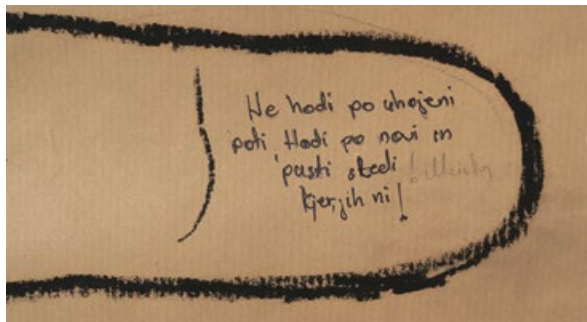 Ne hodi po uhojeni
poti. Hodi po novi in
pusti sledi
kjer jih ni!